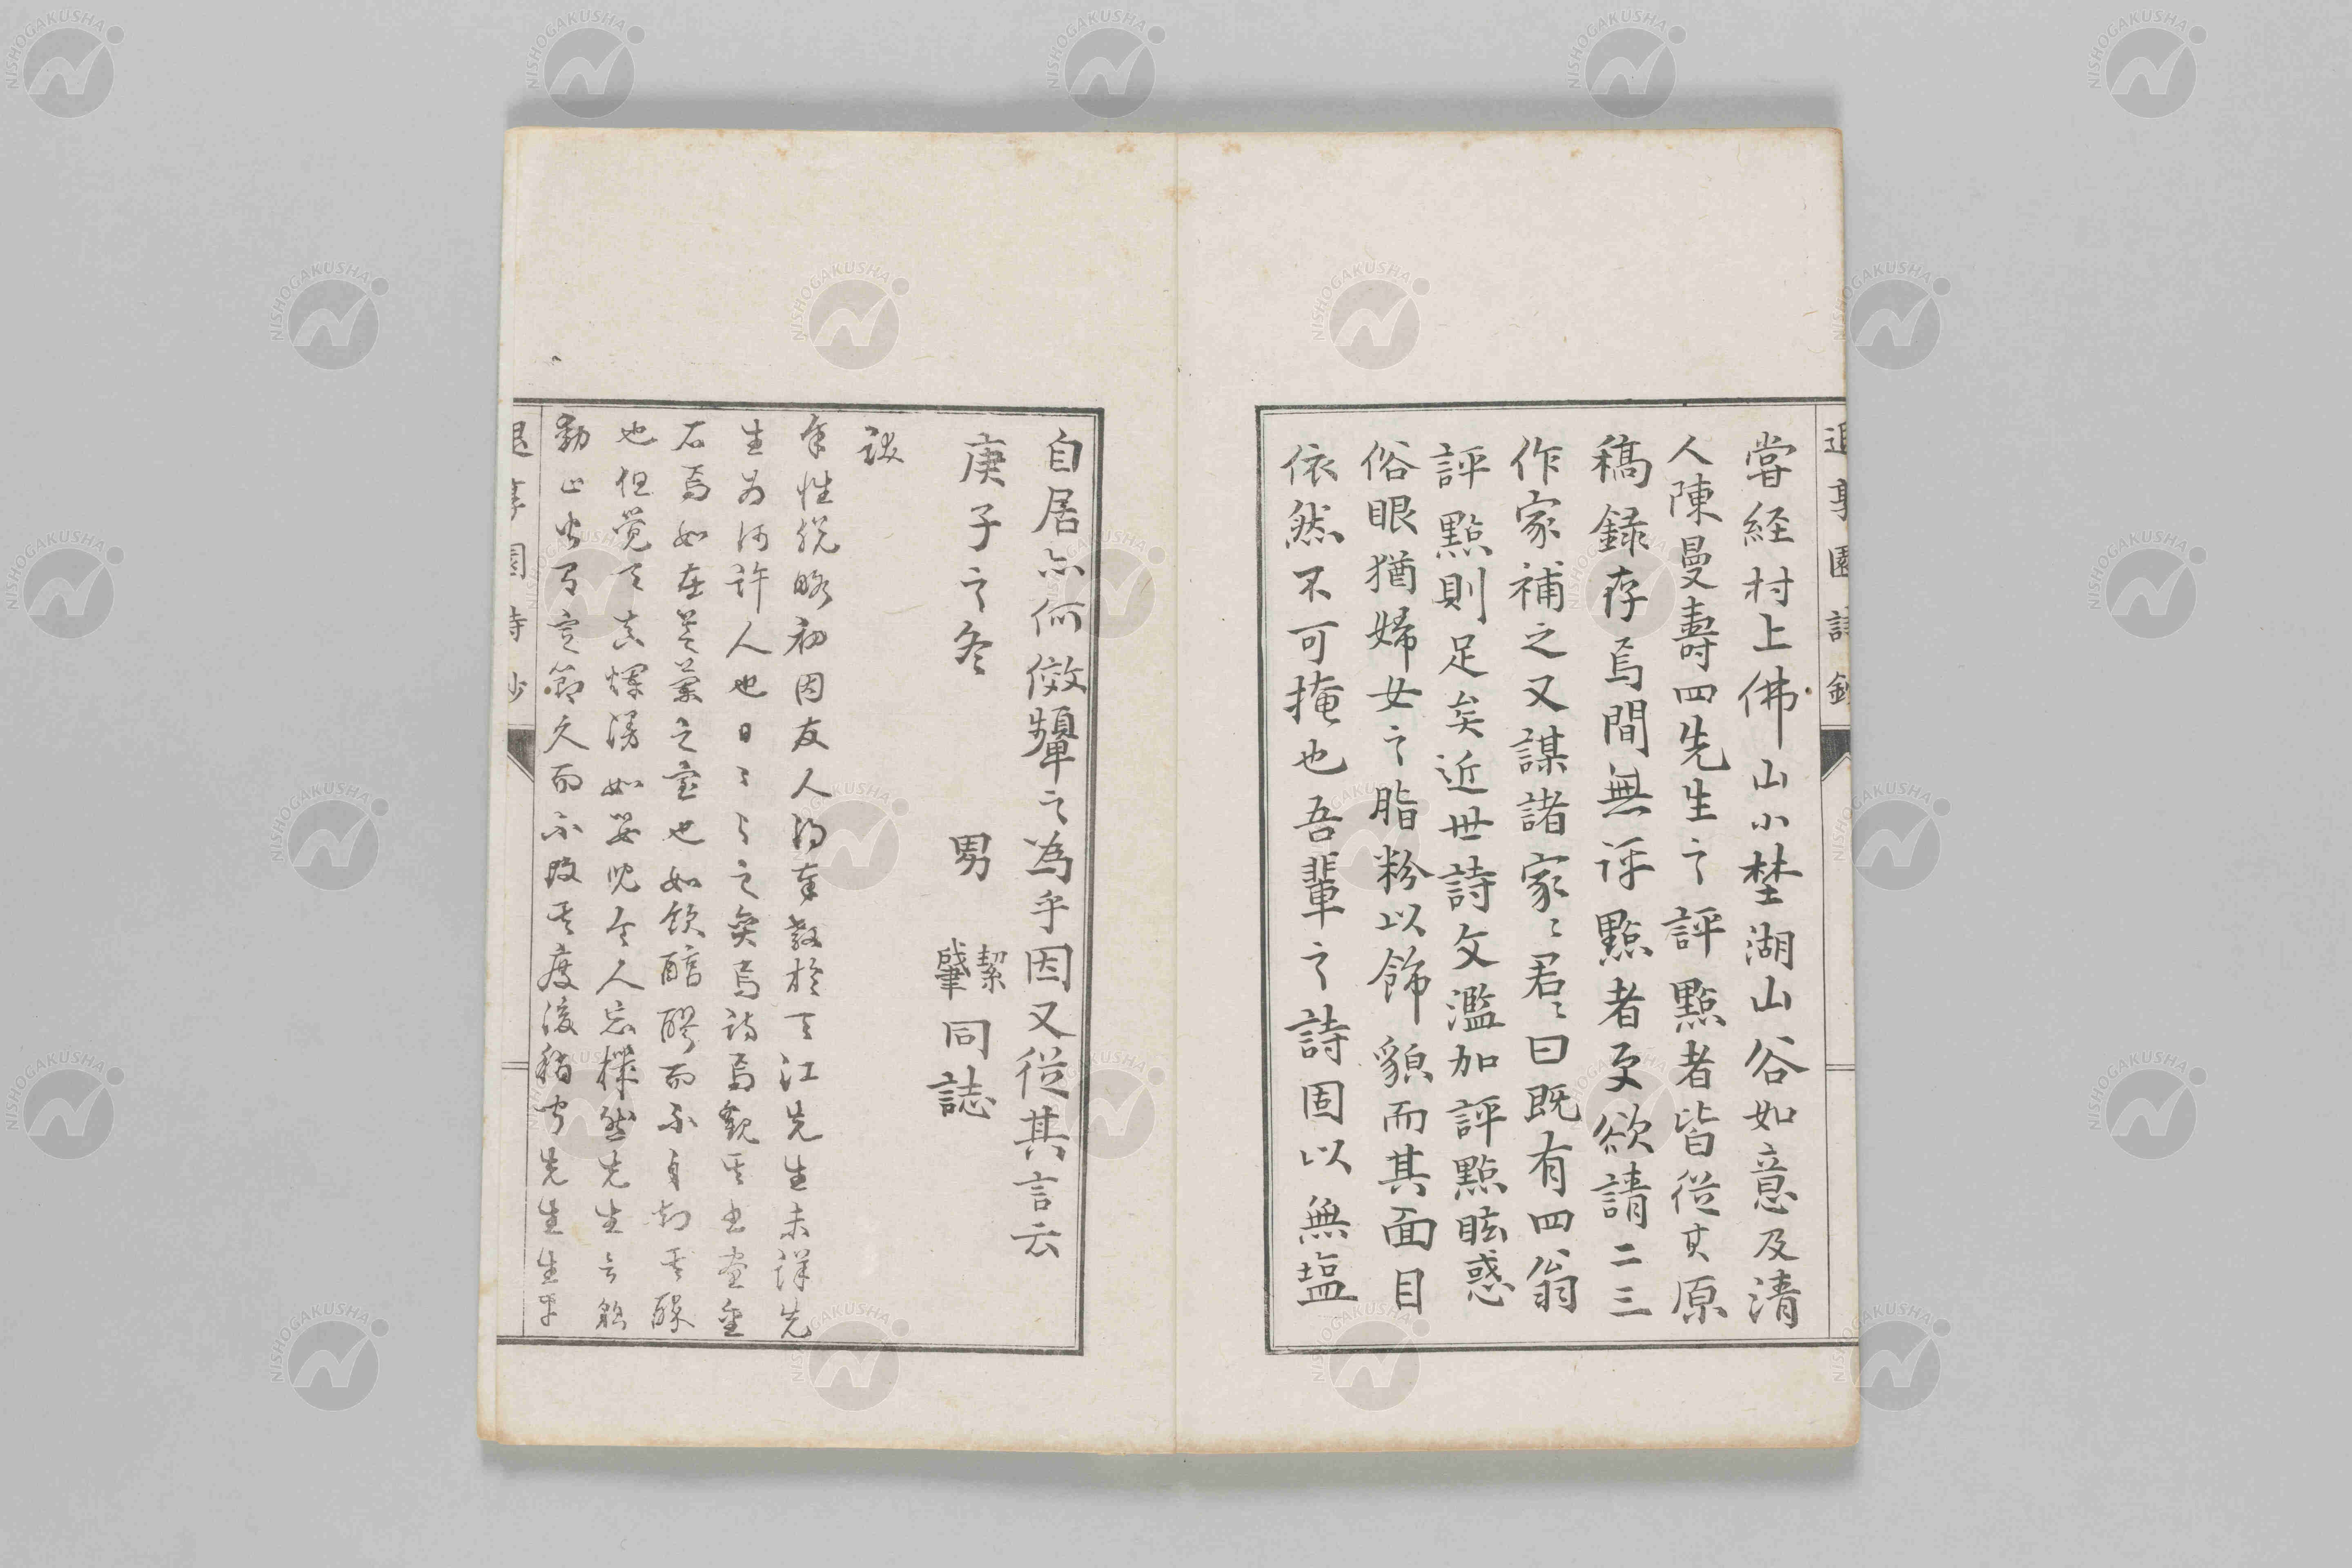 嘗経村上佛山小埜湖山谷如意及清
人陳曼壽四先生之評點者皆從其原
稿録存焉間無評點者更欲請二三
作家補之又謀諸家〻君〻曰既有四翁
評點則足矣近世詩文濫加評點眩惑
俗眼猶婦女之脂粉以飾貌而其面目
依然不可掩也吾輩之詩固以無塩
自居亦何倣顰之為乎因又從其言云
庚子之冬 男 絜 肇 同誌
跋
余性脱略初因友人得奉教於天江先生未詳先
生為何許人也日〻与之奕焉詩焉觀其書畫金
石焉如在芝蘭之室也如飲醇醪而不自知其醉
也但覚天真爛漫如嬰児令人忘機然先生言
動止皆有定節久而不改其度後稍宀先生生平
退享園詩鈔